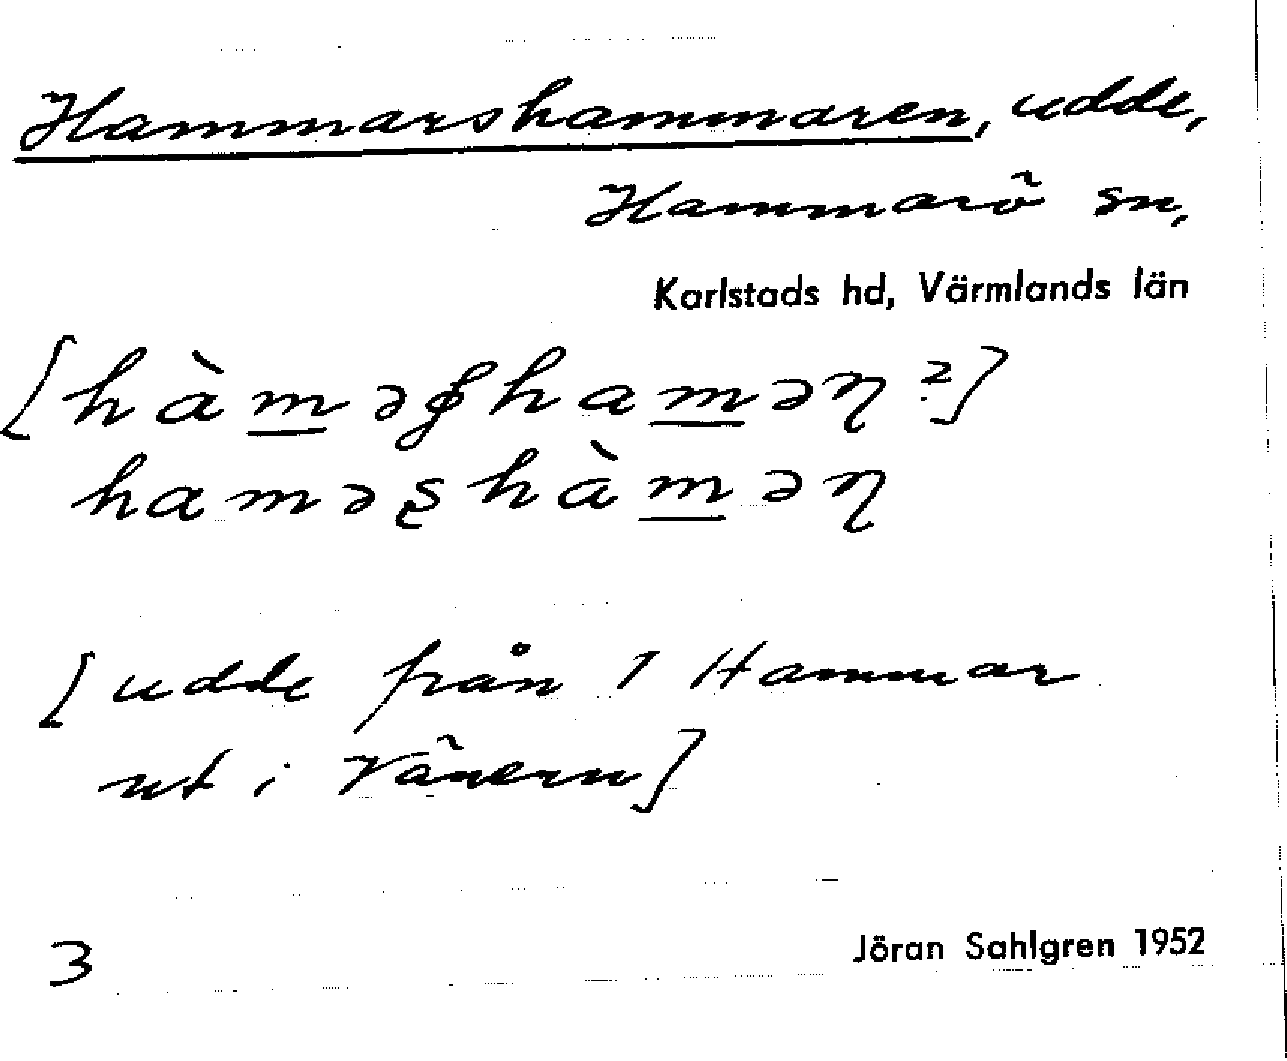 Hammarshammaren, udde,
Hammarö sn,
Karlstads hd, Värmlands län
[hàm̲əʂham̲əɳ?]
haməʂhàm̲əɳ
[udde från 1 Hammar
ut i Vänern]
3
Jöran Sahlgren 1952